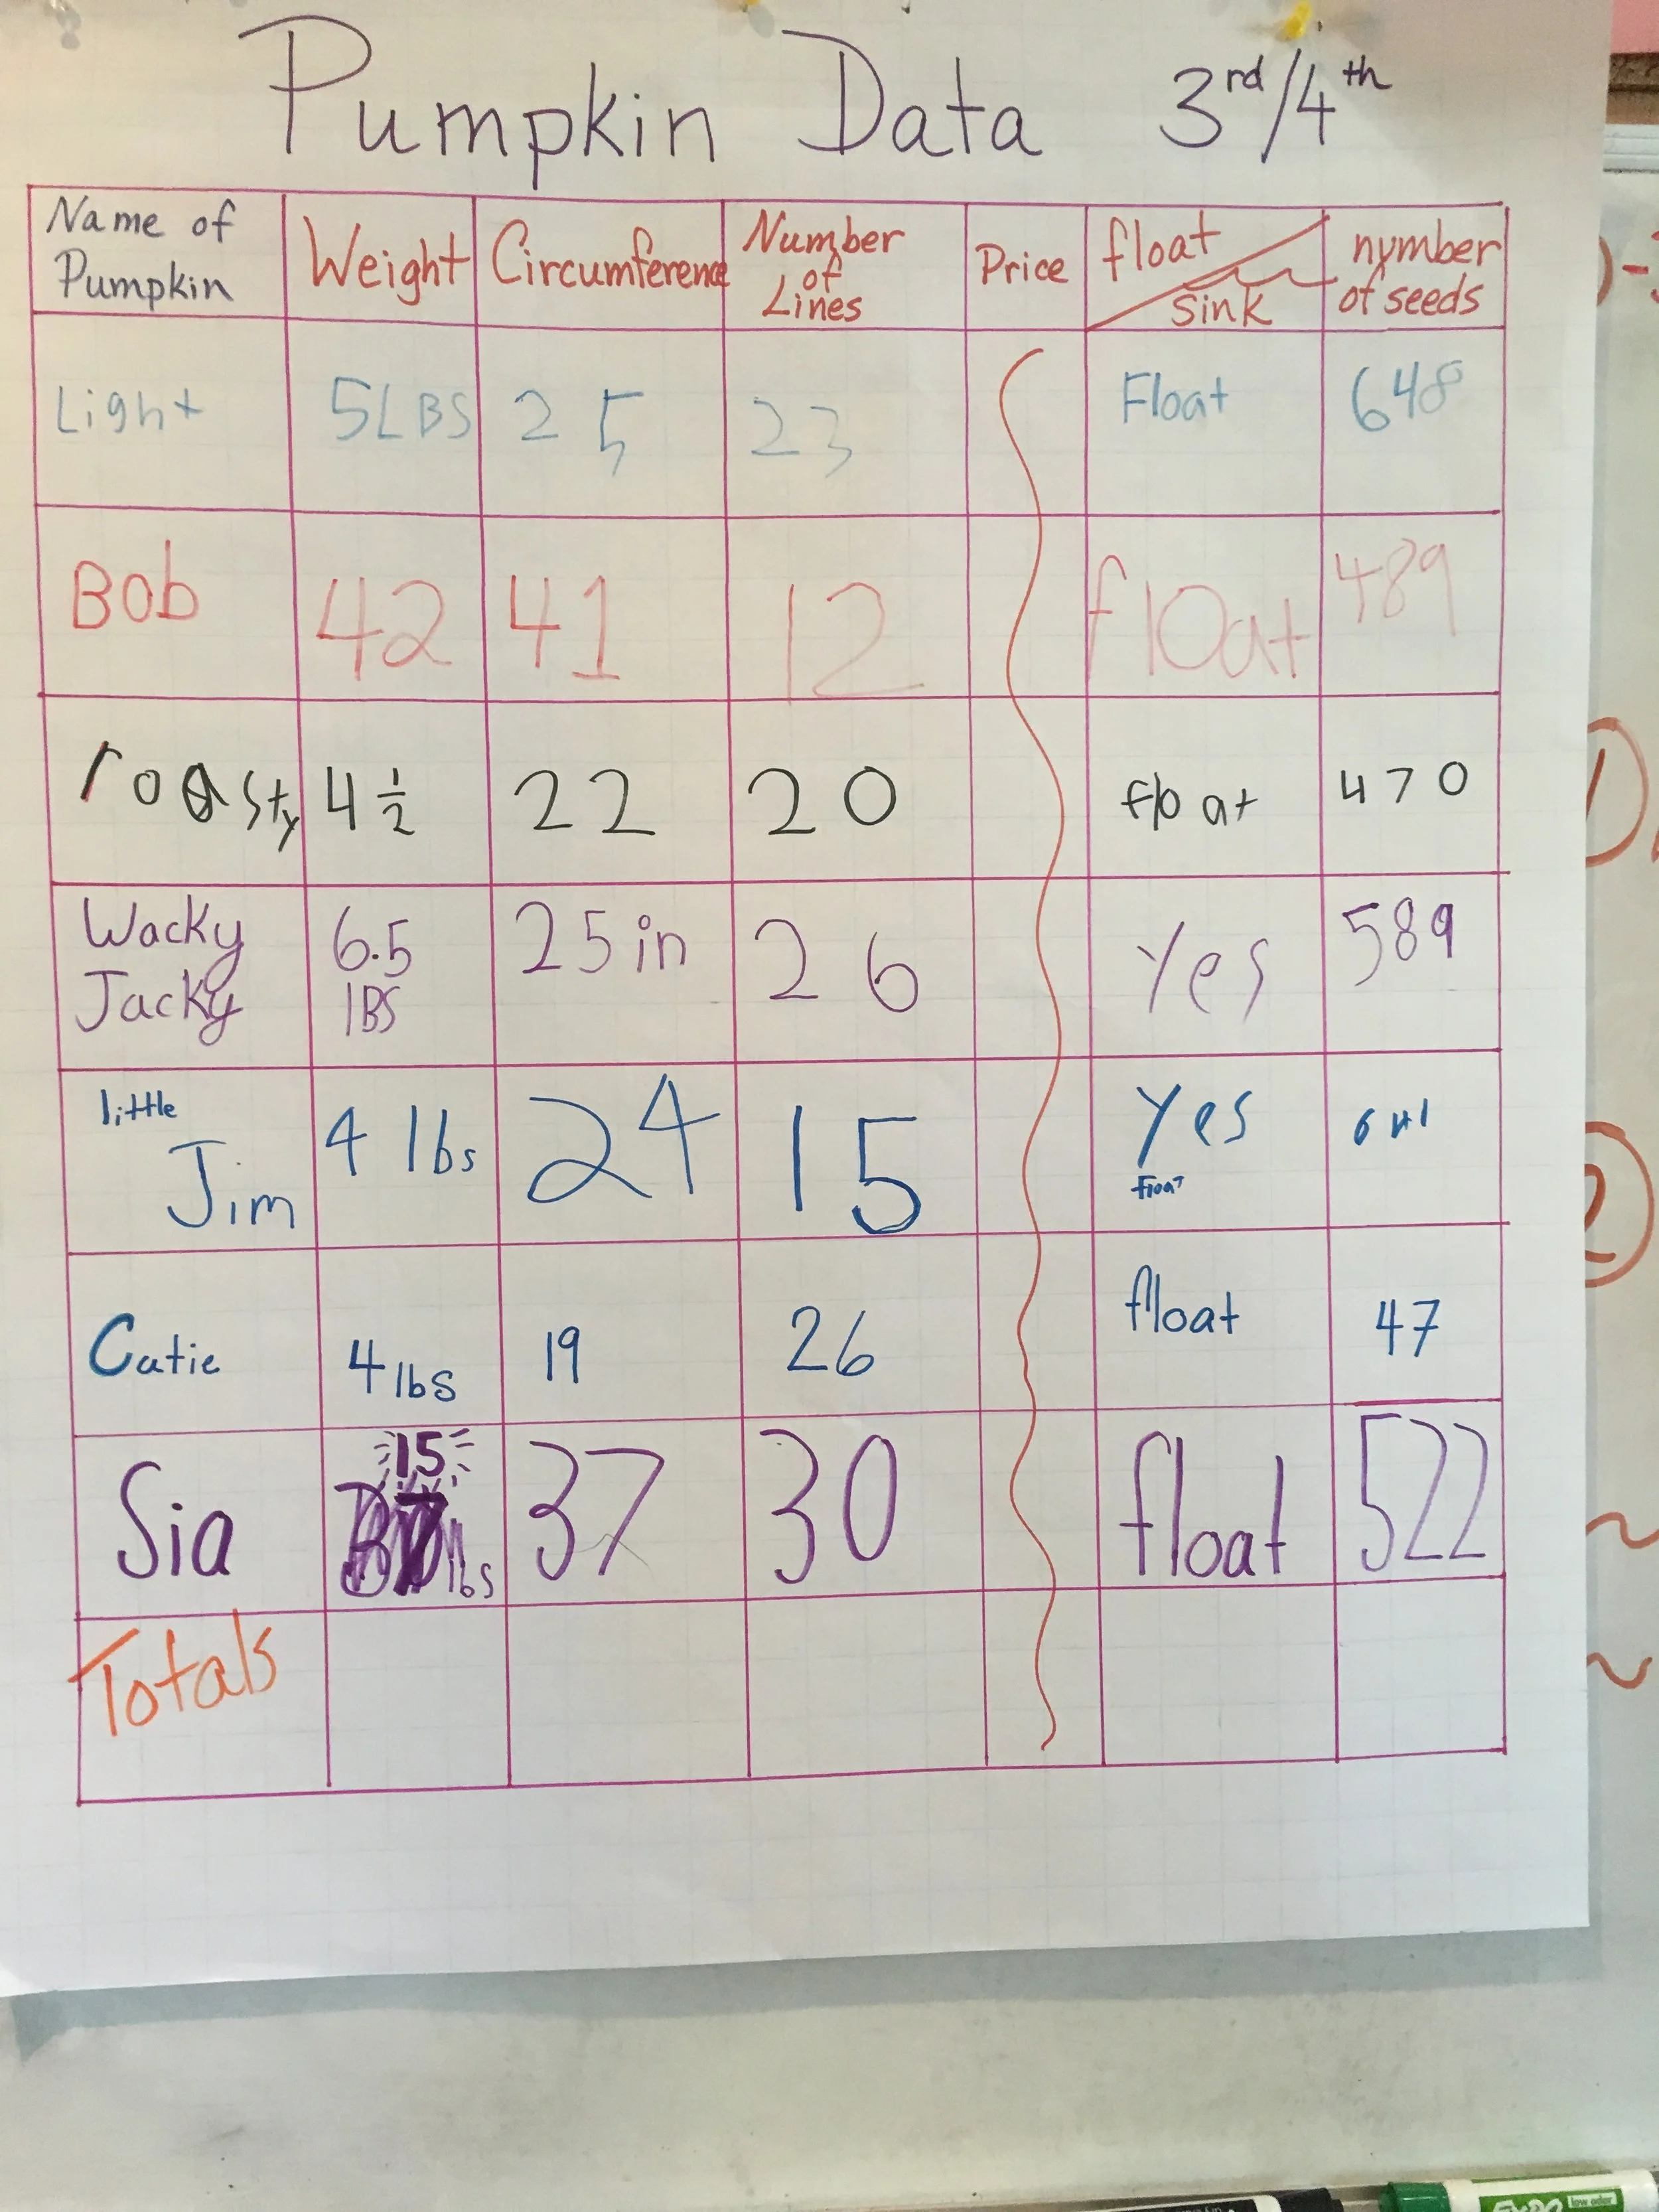 Pumpkin Data 3rd/4th
Name of Pumpkin Weight Circumference Number of Lines Price float sink number of seeds
Light 5LBS 25 23 Float 648
Bob 42 41 12 float 489
roasty 4 1/2 22 20 float 470
Wacky Jacky 6.5 lBS 25 in 26 Yes 589
little Jim 4 lbs 24 15 Yes Float
Cutie 4 lbs 19 26 float 47
Sia 15 lbs 37 30 float 522
Totals
EXPO low odor